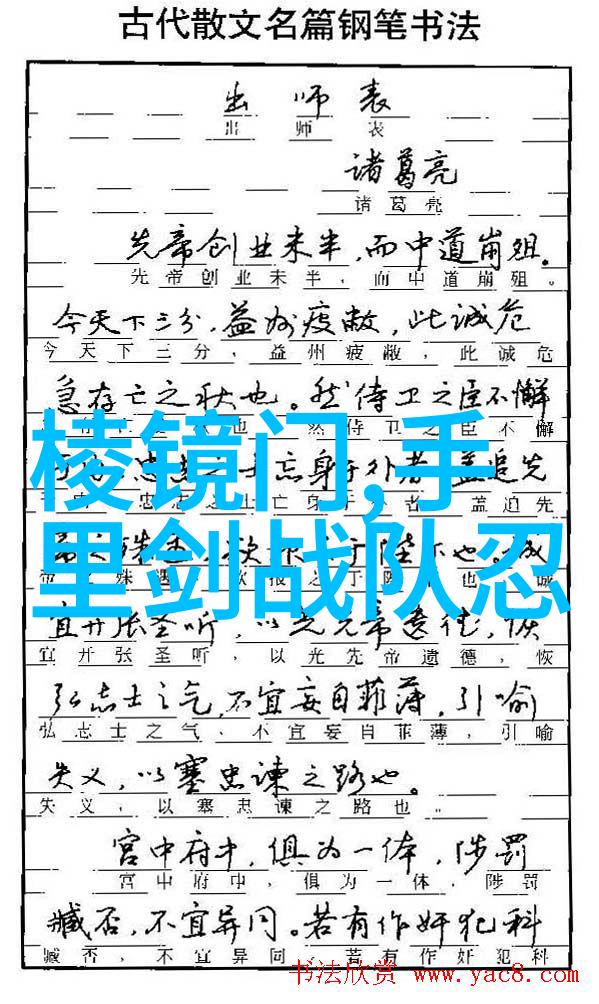 古代散文名篇钢笔书法
出师表
出师表
诸葛亮
诸葛亮
先帝创业未半，而中道崩殂。
先帝创业未半，而中道崩殂。
今天下三分，益州疲敝，此诚危
今天下三分，益州疲敝，此诚危
急存亡之秋也。然侍卫之臣不懈
也 然侍卫之臣不懈
棱镜门,手
里剑战队忍
忘身于外者 盖追先
忠志之士亡身于 者 盖追先
于陛下也。诚
帝之殊遇 欲报之于陛 也 诚
宜开张圣听，以光先帝遗德，恢
宜开张圣听，以光先帝遗德，恢
弘志士之气，不宜妄自菲薄，引喻
弘志士之气，不宜妄自菲薄，引喻
失义，以塞忠谏之路也。
失义，以塞忠谏之路也。
宫中府中，俱为一体，陟罚
宫中府中，俱为一体，陟罚
臧否，不宜异同。若有作奸犯科
臧否，不宜异同 若有作奸犯科
书法欣赏 www.yac8.com